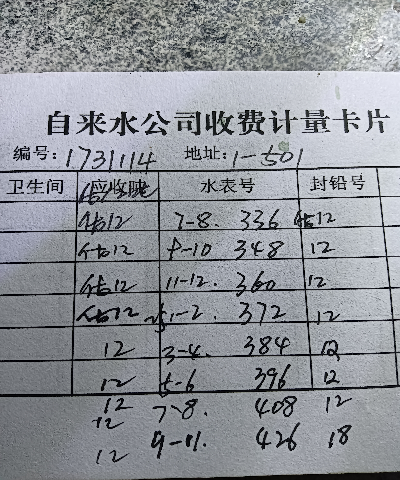 自来水公司收费计量卡片
编号: 1731114 地址: 1-501
卫生间 应收 水表号 封铅号
估12 7-8. 336 估12
估12 9-10 348 12
估12 11-12. 360 12
估12 1-2. 372 12
12 3-4. 384 12
12 5-6 396 12
12 7-8. 408 12
12
12 9-11. 426 18